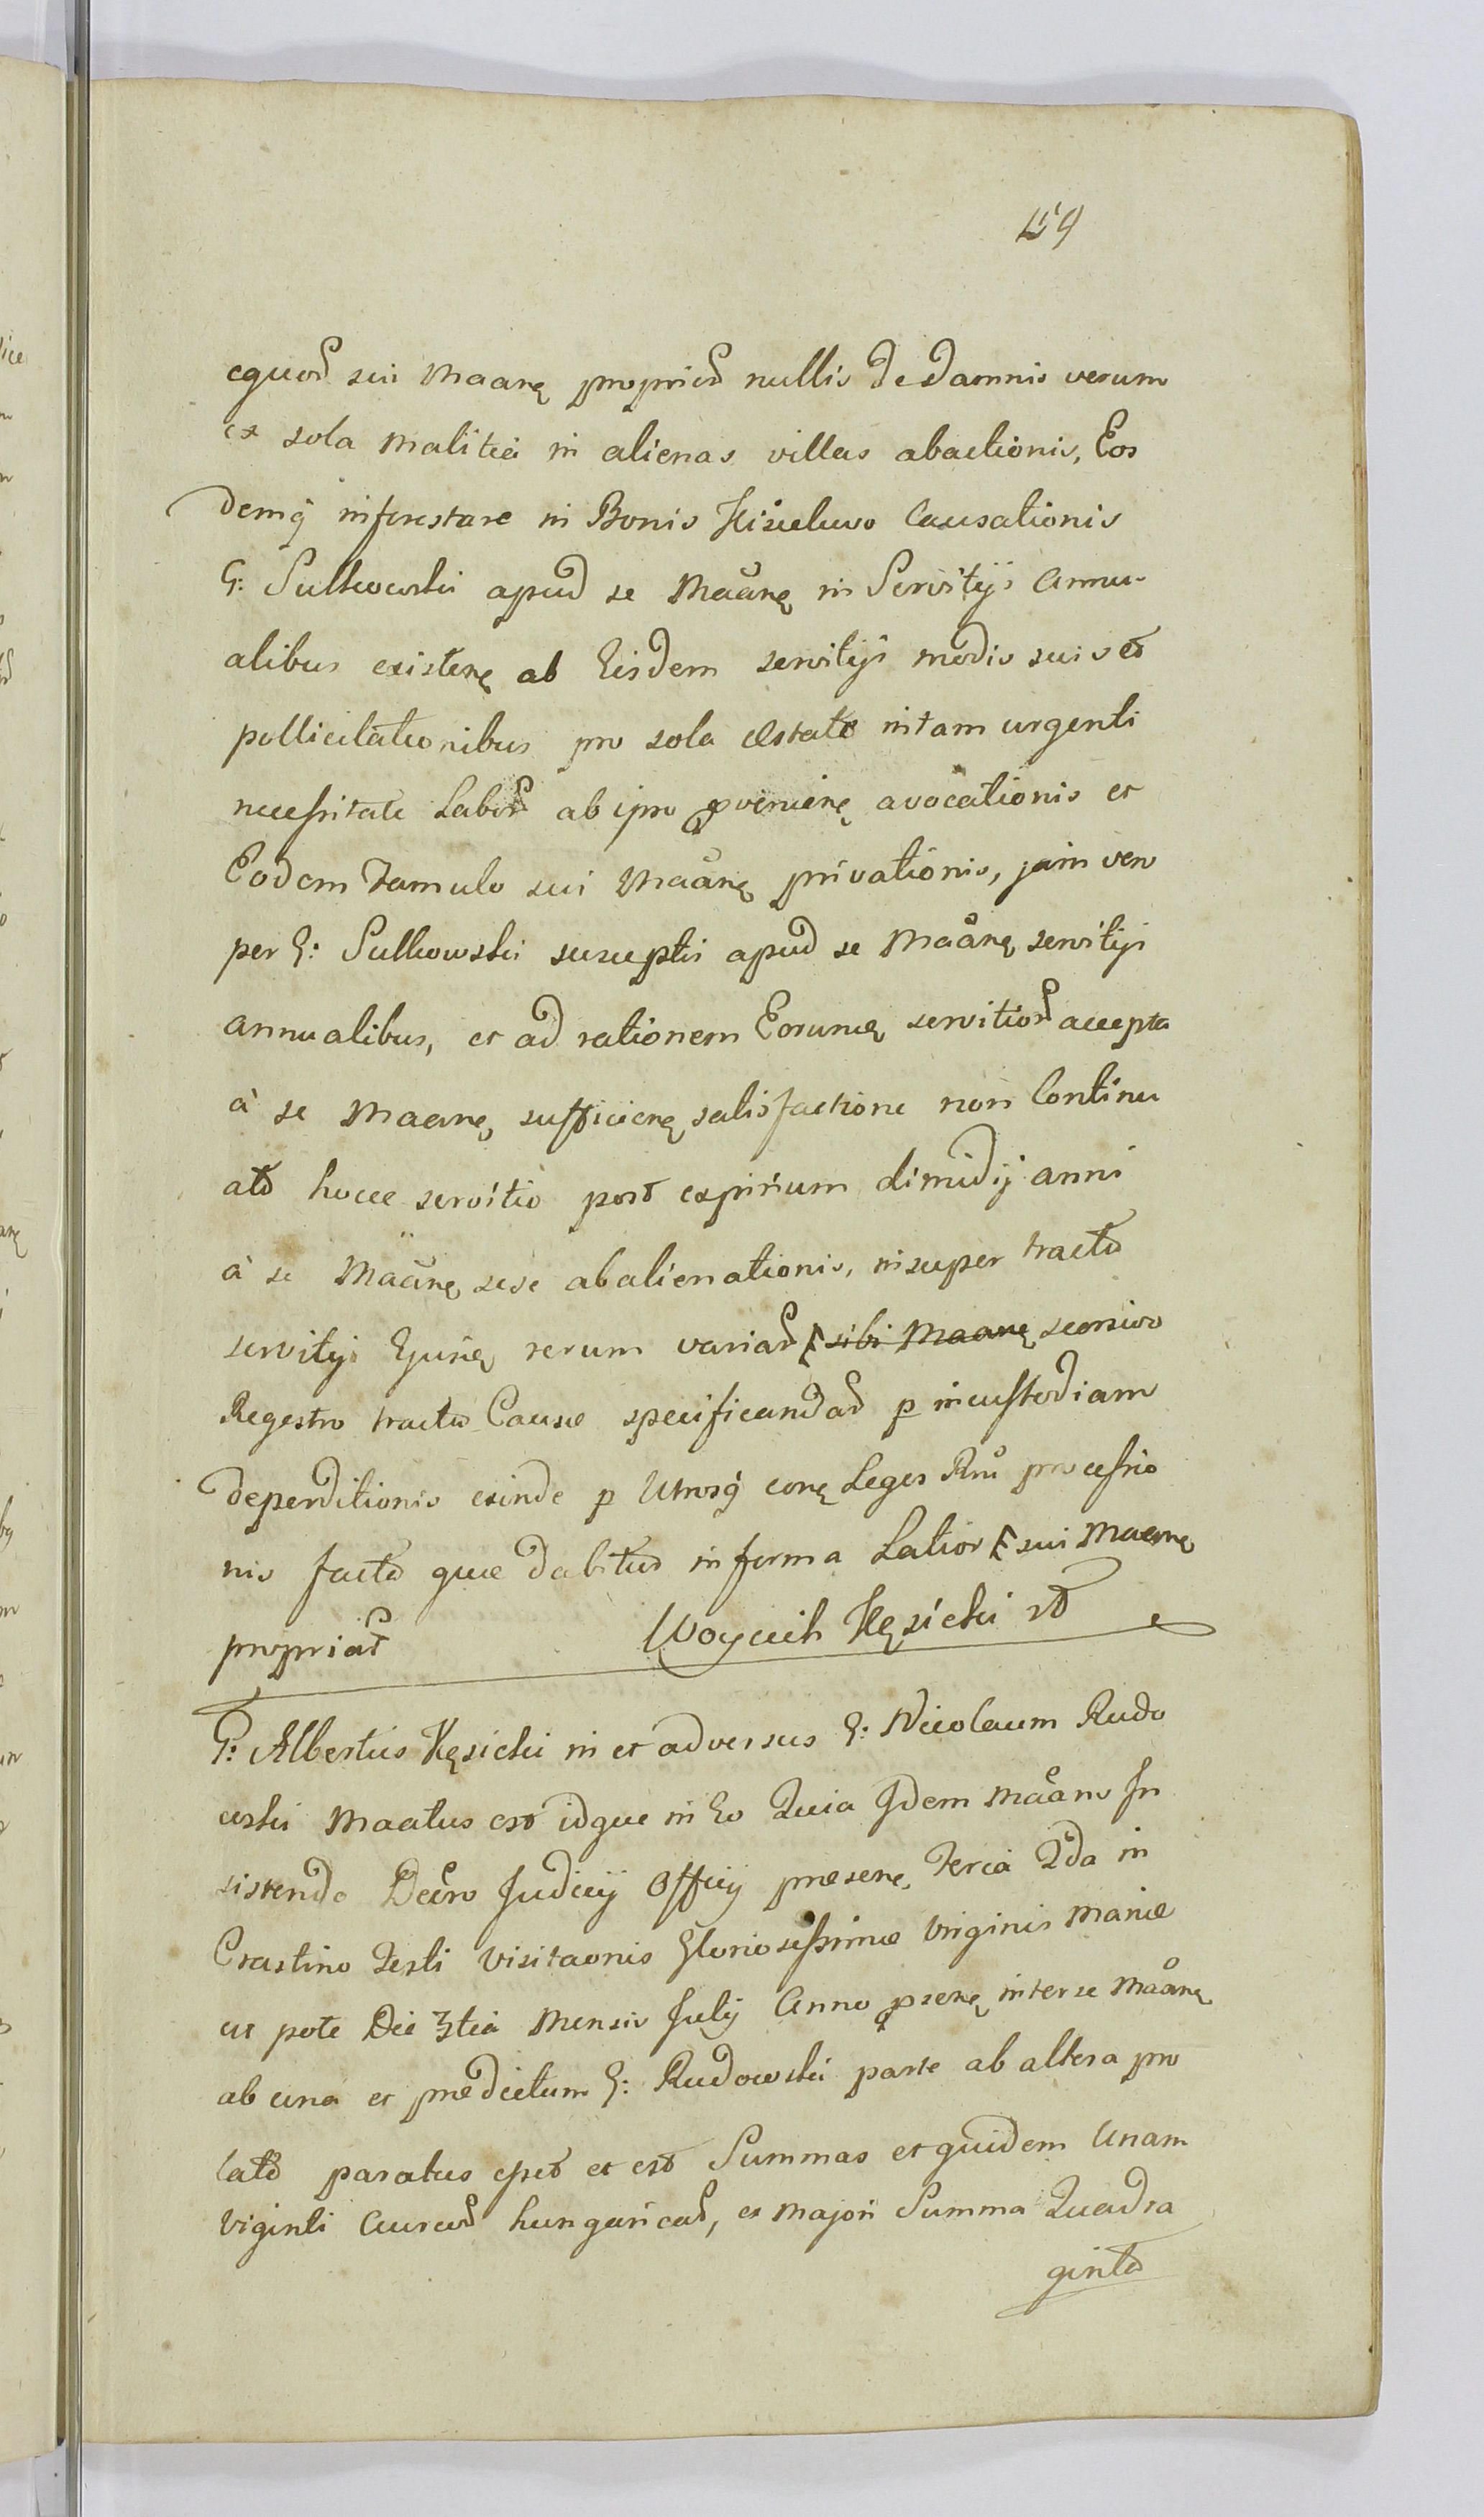 159
equor sui Maanę propriор nullis de damnis verum
ex sola malitia in alienas villas abactionis, Eos
demq inforestare in Bonis Kisielewo Causationis
G: Sulkowski apud se Maanę in Servitijs Annu-
alibus existenę ab Eisdem servitijs modis suis et
pollicitationibus pro sola Æstate in tam urgenti
necessitate Labor ab ipso provenienę avocationis et
Eodem Famulo sui Maanę privationis, jam vero
per G: Sulkowski susceptis apud se Maanę servitijs
annualibus, et ad rationem Eorumę servitior accepta
à se Maanę, sufficienę satisfactione non Continu
ato hocce servitio post expirium dimidij anni
à se Maanę sese abalienationis, insuper tracto
servitijs Ejusę rerum variar sibi Maanę seorsivo
Regestro tractu Causæ specificandar p incustodiam
deperditionis exinde p Utrosq conę Leges Rni processio
nis facta quæ dabitur in forma Latior sui Maanę
propria
Woyciech Kęsicki
G: Albertus Kęsicki in et adversus G: Nicolaum Rudo
wski Maatus est idque in Eo Quia Idem Maans In
sistendo Decro Judicij Officij præsenę, Feria 2da in
Crastino Festi Visitaonis Gloriosissimæ Virginis Mariæ
ut pote Die 3tia Mensis Julij Anno psenę inter se Maanę
ab una et prædictum G: Rudowski parte ab altera pro
lato paratus esset et est Summas et quidem Unam
Viginti Aureor hungaricar, ex majori Summa Quadra
ginta